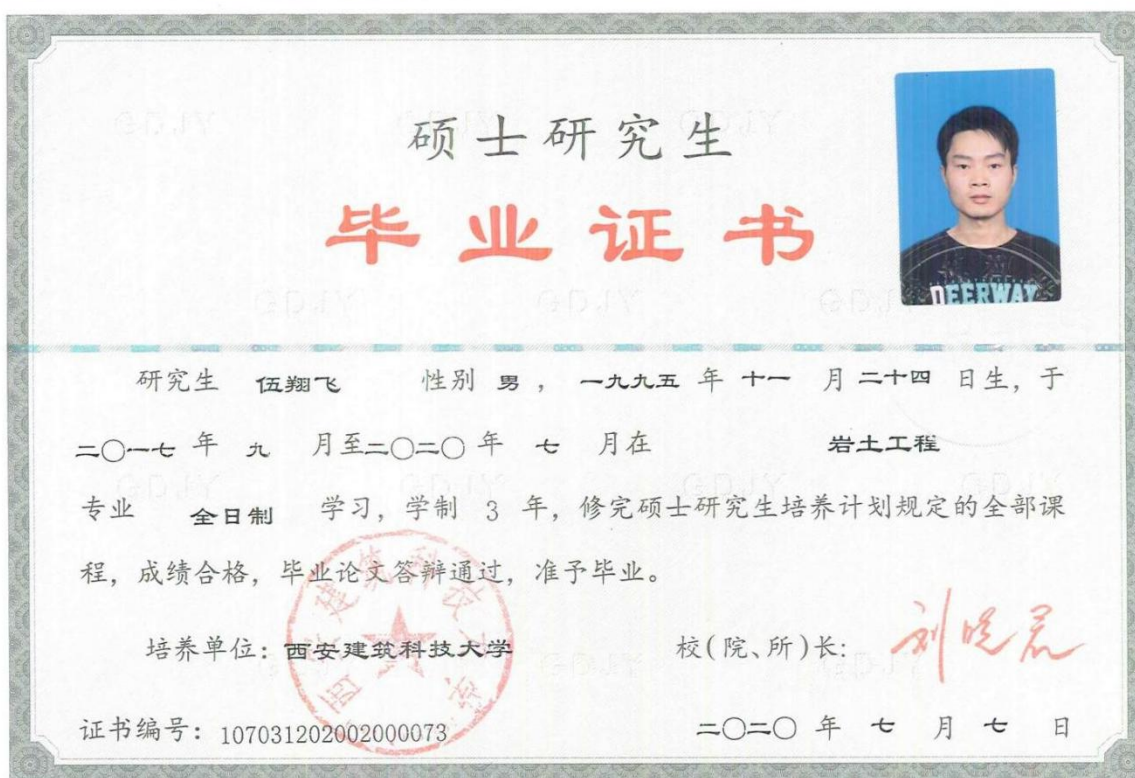 硕士研究生
毕业证书
DEERWAY
研究生 伍翔飞 性别 男 ， 一九九五 年 十一 月 二十四 日生，于
二〇一七 年 九 月至二〇二〇 年 七 月在 岩土工程
专业 全日制 学习，学制 3 年，修完硕士研究生培养计划规定的全部课
程，成绩合格，毕业论文答辩通过，准予毕业。
培养单位：西安建筑科技大学 校(院、所)长：刘晓君
西安建筑科技大学
证书编号：107031202002000073 二〇二〇 年 七 月 七 日